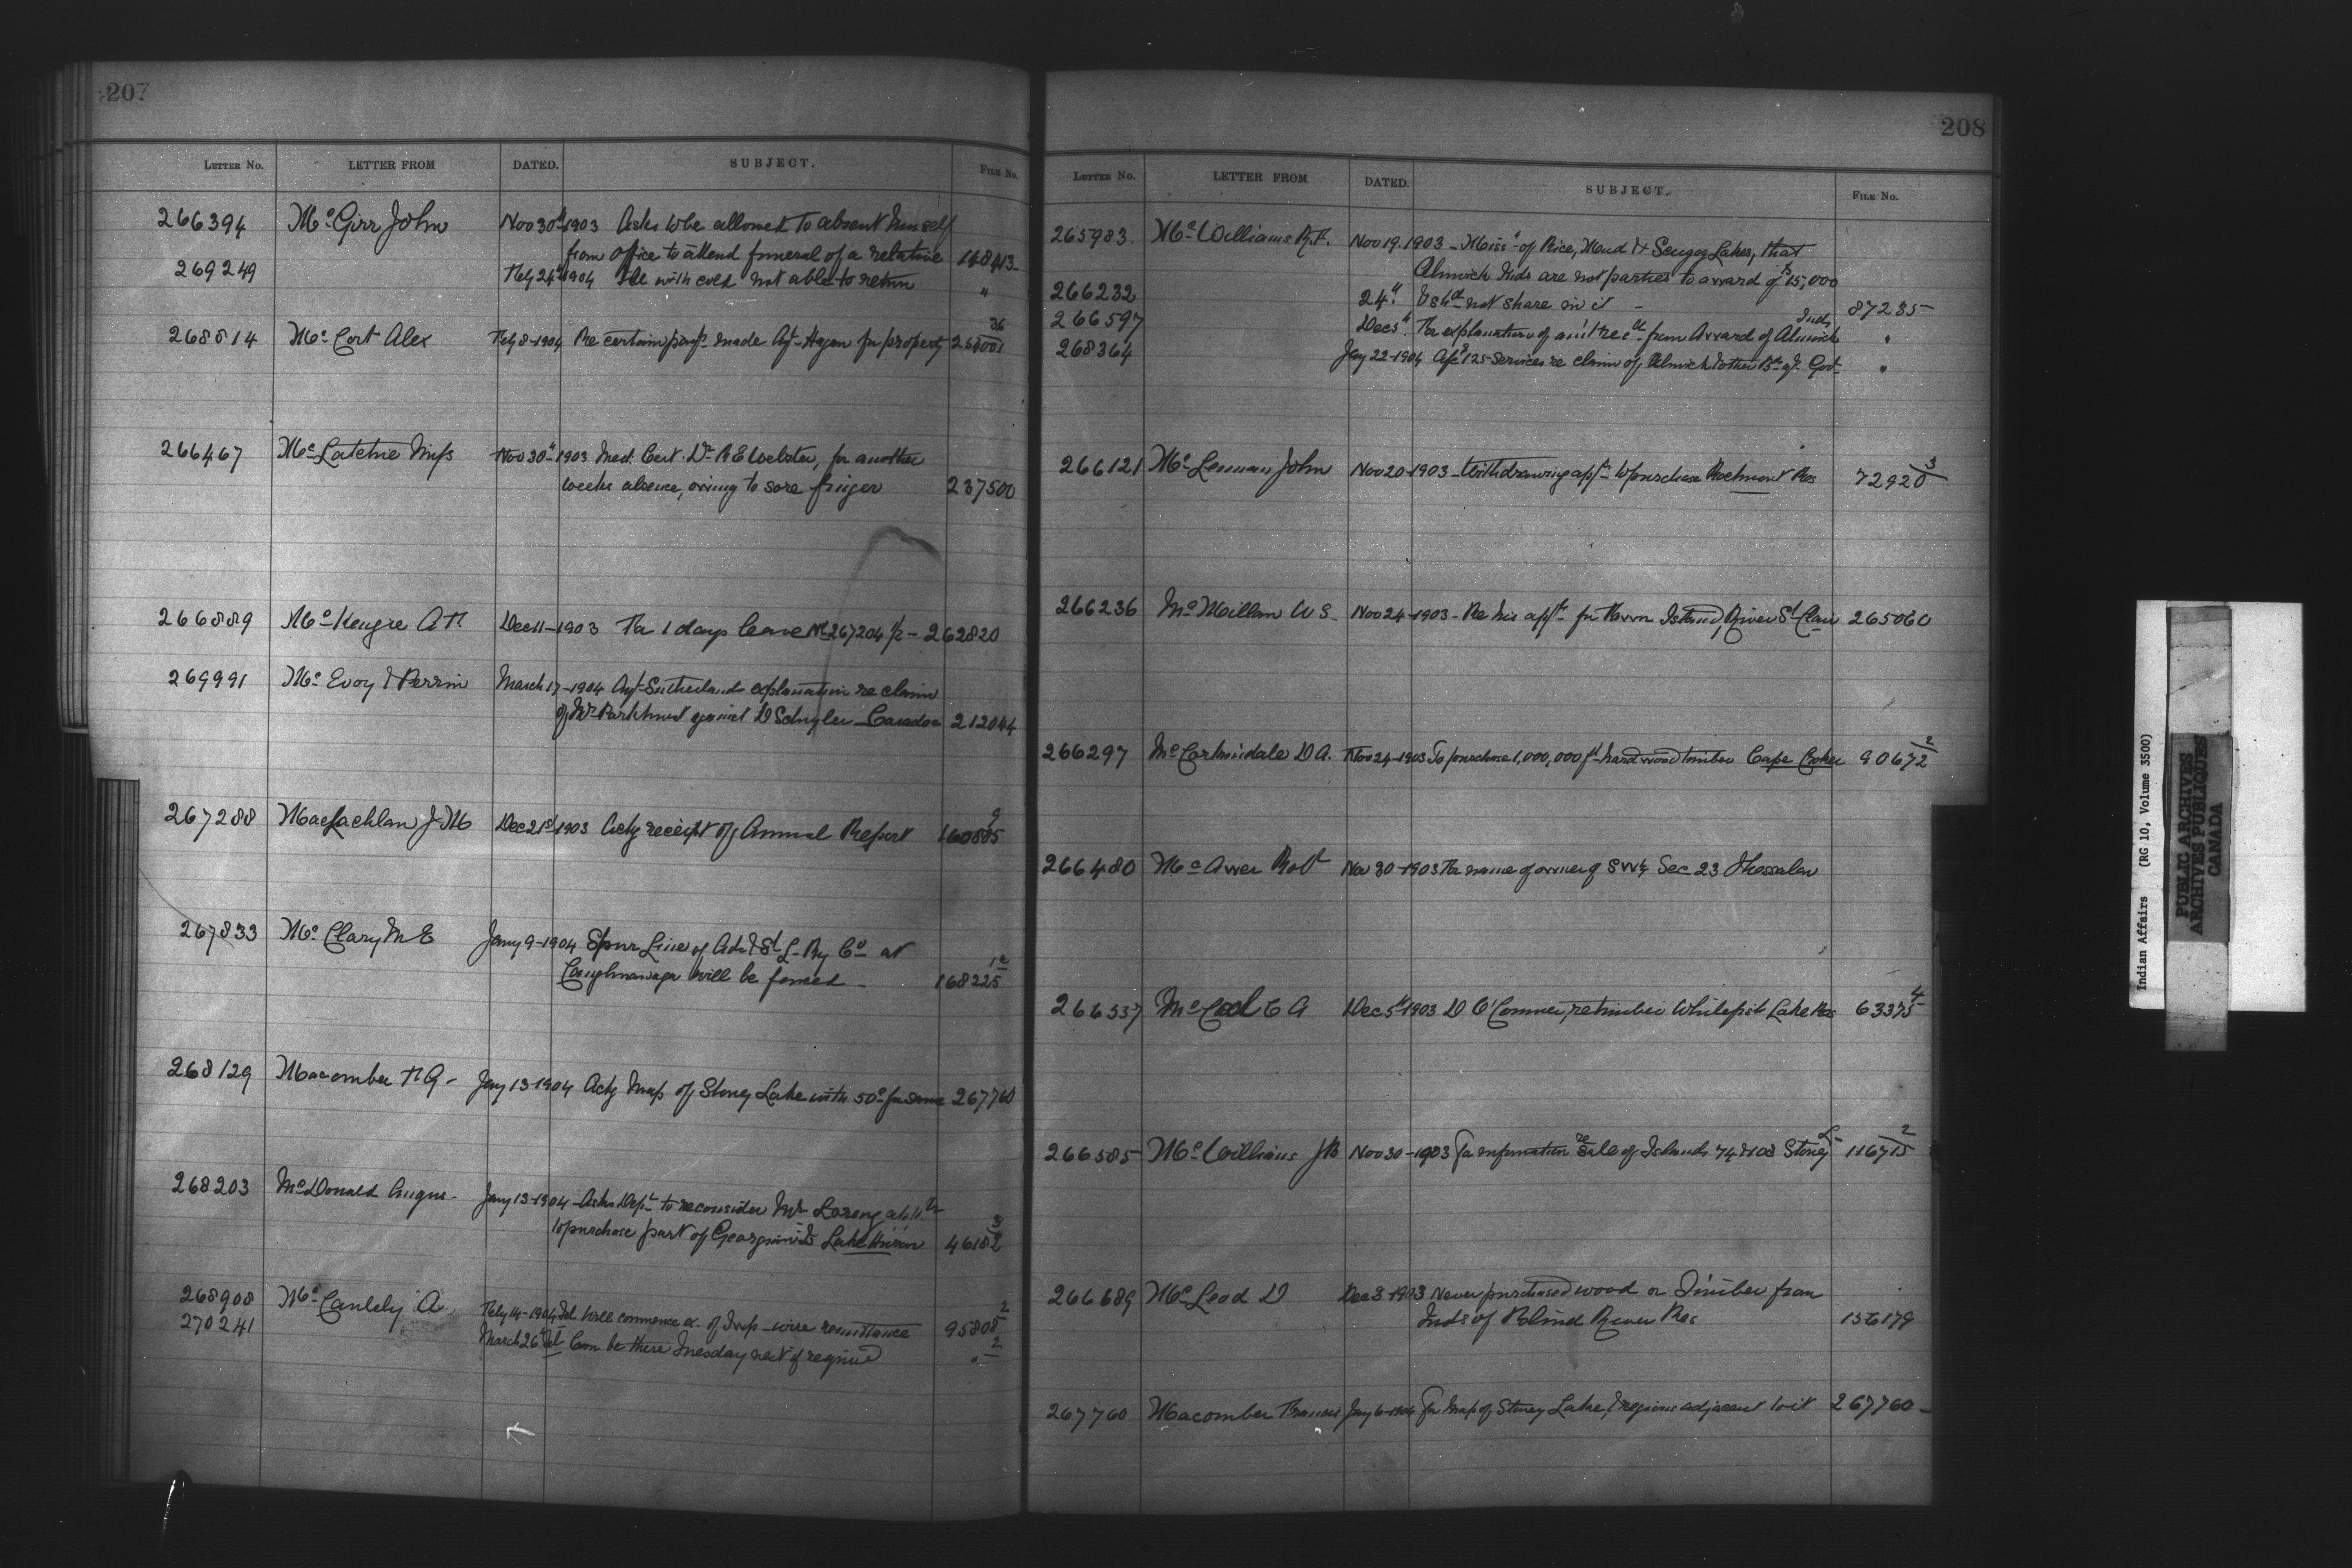 207
LETTER No. LETTER FROM DATED. SUBJECT. FILE No.
266394 McGirr John Nov 30th 1903 Asks to be allowed to absent himself
from office to attend funeral of a relative 148413
269249 Feby 24th 1904 Ill with cold not able to return "
268814 McCort Alex Feby 8-1904 Re certain paymts made Agt Hagan for property 36
266467 McLatchie Miss Nov 30th 1903 Med. Cert. Dr R E Webster, for another
weeks absence, owing to sore finger 237500
266889 McKenzie A H Dec 11-1903 For 1 days leave 267204 262820
269991 McEvoy & Perrin March 17-1904 Agt Sutherlands explanation re claim
of Mr Parkhurst against D Schuyler Caradoc 212044
267288 MacLachlan J M Dec 21st 1903 Ackg receipt of Annual Report 160885 9
267833 McClary M E Jany 9-1904 Spur Line of Ada & St L-Ry Co at
Caughnawaga will be fenced 168225 12
268129 Macomber F G Jany 13-1904 Ackg Map of Stoney Lake with 50c for same 267760
268203 McDonald Angus Jany 13-1904 Asks Dept to reconsider Mr
to purchase part of Lake Huron 46182 3
268908 A. Feby 14-1904 Tel Will commence of wire remittance 95808 2
270241 March 26 Tel Can be there Tuesday next if required " 2
208
LETTER No. LETTER FROM DATED. SUBJECT. FILE No.
265983. McWilliams R.F. Nov 19. 1903 - Miss's of Rice, Mud & Scugog Lakes, that
Alnwick Inds are not parties to award of $15,000
266232 24th & shd not share in it 87235
266597 Dec 5th For explanation of amt recd from Award of Alnwick Inds "
268364 Jany 22-1904 Afc $125 Services re claim of Alnwick & other Govt "
266121 McLennan John Nov 20-1903 - Withdrawing appn to purchase Res 72920 3
266236 McMillan W S. Nov 24-1903 - Re his appn for Island, River St Clair 265060
266297 D A. Nov 24-1903 To purchase 1,000,000 ft hard wood timber Cape Croker 90672 2
266480 Robt Nov 30-1903 For name of owner of SW¼ Sec 23 Thessalon
266537 McCool C A Dec 5th 1903 D O'Connor, re timber Whitefish Lake Res 63375 4
266585 McWilliams J B Nov 30-1903 For information re Sale of Islands 74 & 108 Stoney L 116715 2
266689 McLeod D Dec 8-1903 Never purchased wood or Timber from
Inds of Blind River Res 156179
267760 Macomber Francis Jany 6-1904 For Map of Stoney Lake, & regions adjacent to it 267760
Indian Affairs (RG 10, Volume 3500)
PUBLIC ARCHIVES
ARCHIVES PUBLIQUES
CANADA